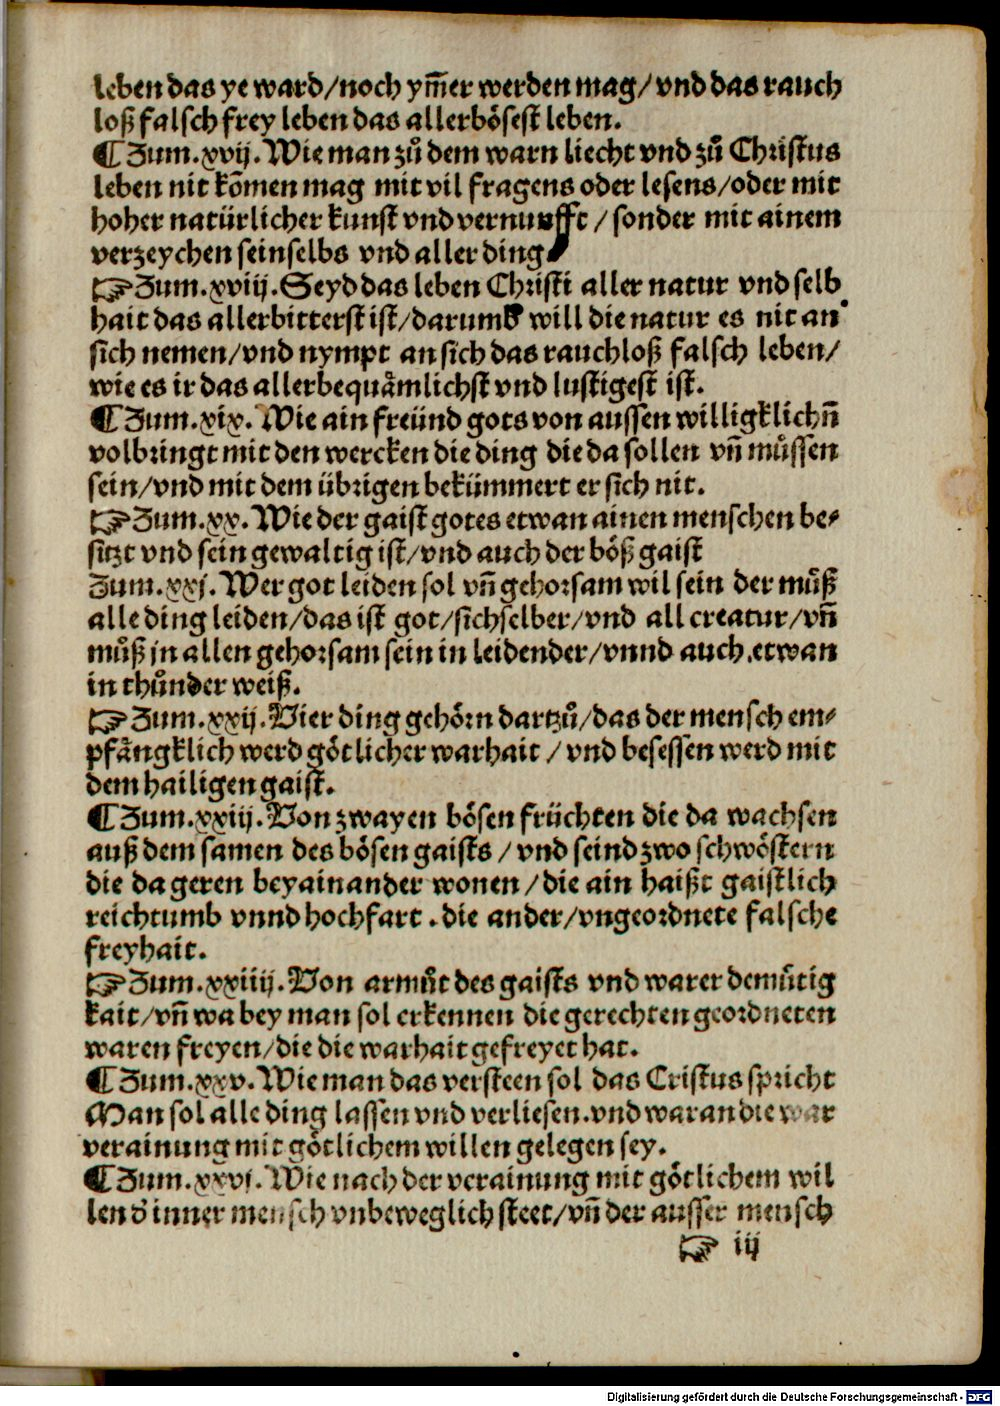 leben das ye ward/noch ym̃er werden mag/ vnd das rauch
loß falsch frey leben das allerbösest leben.
¶ Zum.xvij. Wie man zů dem warn liecht vnd zů Christus
leben nit kõmen mag mit vil fragens oder lesens/oder mit
hoher natürlicher kunst vnd vernunfft / sonder mit ainem
verzeychen seinselbs vnd aller ding
☞ Zum.xviij. Seyd das leben Christi aller natur vnd selb
hait das allerbitterst ist/darumb will die natur es nit an
sich nemen/vnd nympt an sich das rauchloß falsch leben/
wie es ir das allerbequåmlichst vnd lustigest ist.
¶ Zum.xix. Wie ain freünd gots von aussen willigklichñ
volbringt mit den wercken die ding die da sollen vñ můssen
sein/vnd mit dem übrigen bekümmert er sich nit.
☞ Zum.xx. Wie der gaist gotes etwan ainen menschen be⸗
sitzt vnd sein gewaltig ist/vnd auch der böß gaist
Zum.xxj. Wer got leiden sol vñ gehorsam wil sein der můß
alle ding leiden/das ist got/sichselber/vnd all creatur/vñ
můß jn allen gehorsam sein in leidender/vnnd auch.etwan
in thůnder weiß.
☞ Zum.xxij. Vier ding gehörn dartzů/das der mensch em⸗
pfångklich werd götlicher warhait / vnd besessen werd mit
dem hailigen gaist.
¶ Zum.xxiij. Von zwayen bösen früchten die da wachsen
auß dem samen des bösen gaists / vnd seind zwo schwöstern
die da geren beyainander wonen / die ain haißt gaistlich
reichtumb vnnd hochfart . die ander/vngeordnete falsche
freyhait.
☞ Zum.xxiiij. Von armůt des gaists vnd warer demůtig
kait/vñ wa bey man sol erkennen die gerechten geordneten
waren freyen/die die warhait gefreyet hat.
¶ Zum.xxv. Wie man das versteen sol das Cristus spricht
Man sol alle ding lassen vnd verliesen.vnd war an die war
verainung mit götlichem willen gelegen sey.
¶ Zum.xxvj. Wie nach der verainung mit götlichem wil
len d̕ inner mensch vnbeweglich steet/vñ der ausser mensch
☞ iij
Digitalisierung gefördert durch die Deutsche Forschungsgemeinschaft - DFG